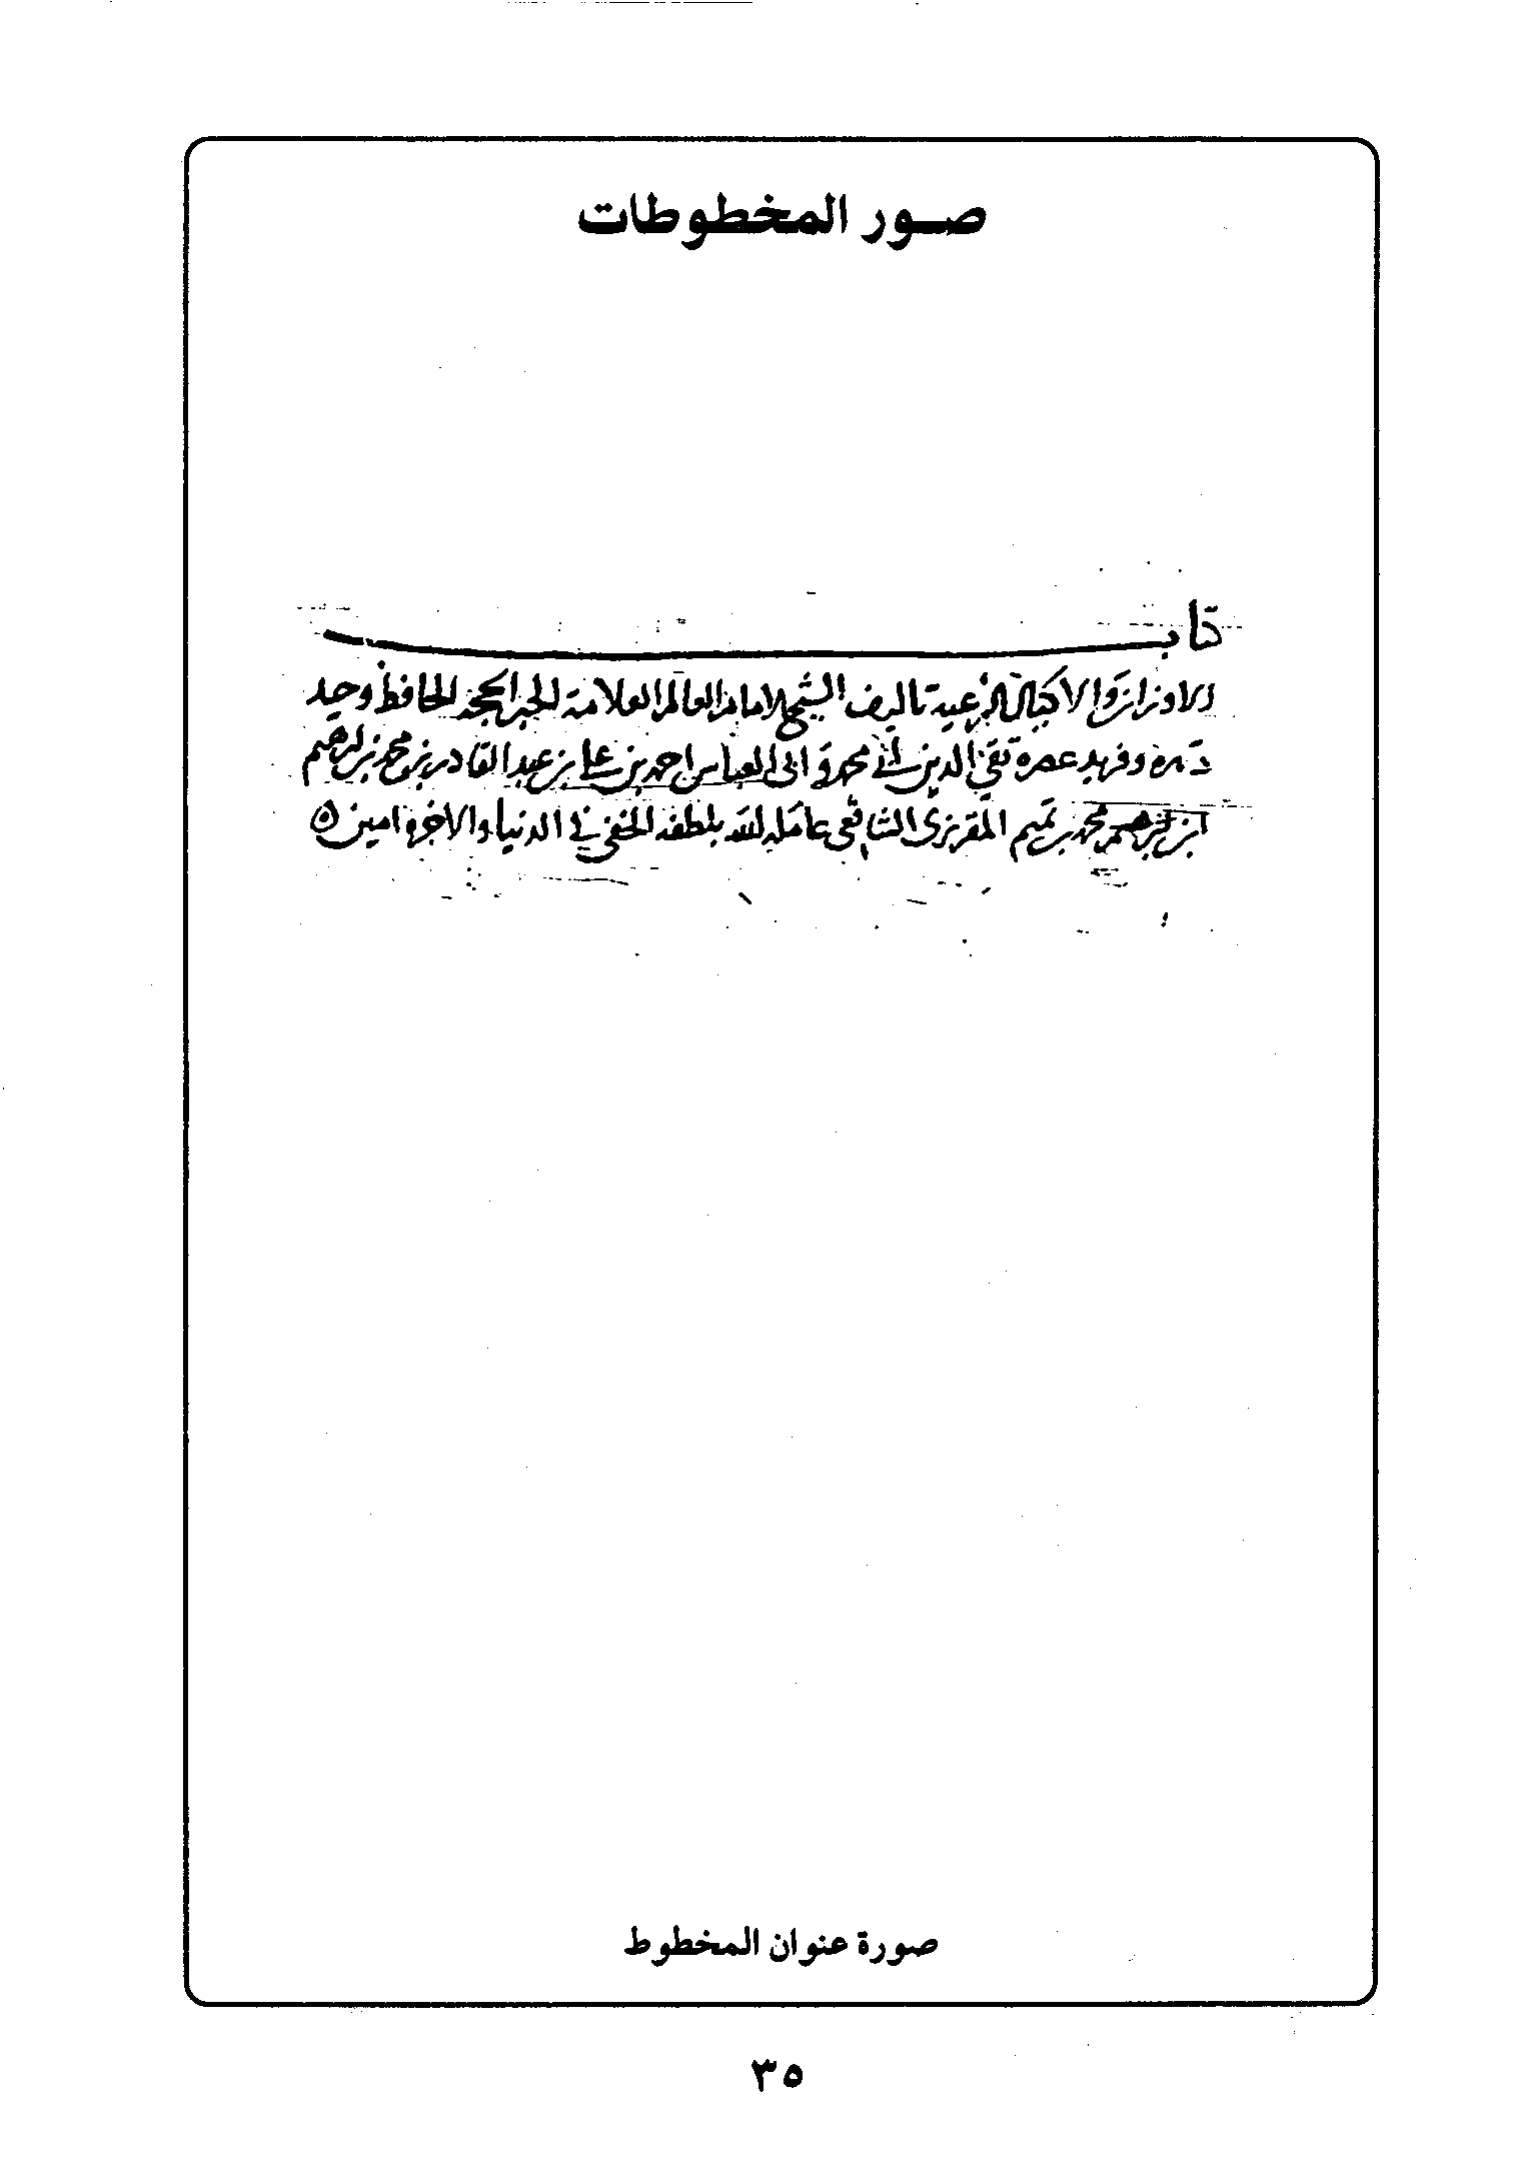 صور المخطوطات
كتاب
الاوزان والاكيال الشرعية تاليف الشيخ الامام العالم العلامة الحبر الحافظ وحيد
دهره وفريد عصره تقي الدين ابي محمد وابي العباس احمد بن علي بن عبد القادر بن محمد بن ابرهيم
ابن محمد بن تميم المقريزي الشافعي عامله الله بلطفه الخفي في الدنيا والاخرة امين
صورة عنوان المخطوط
٣٥